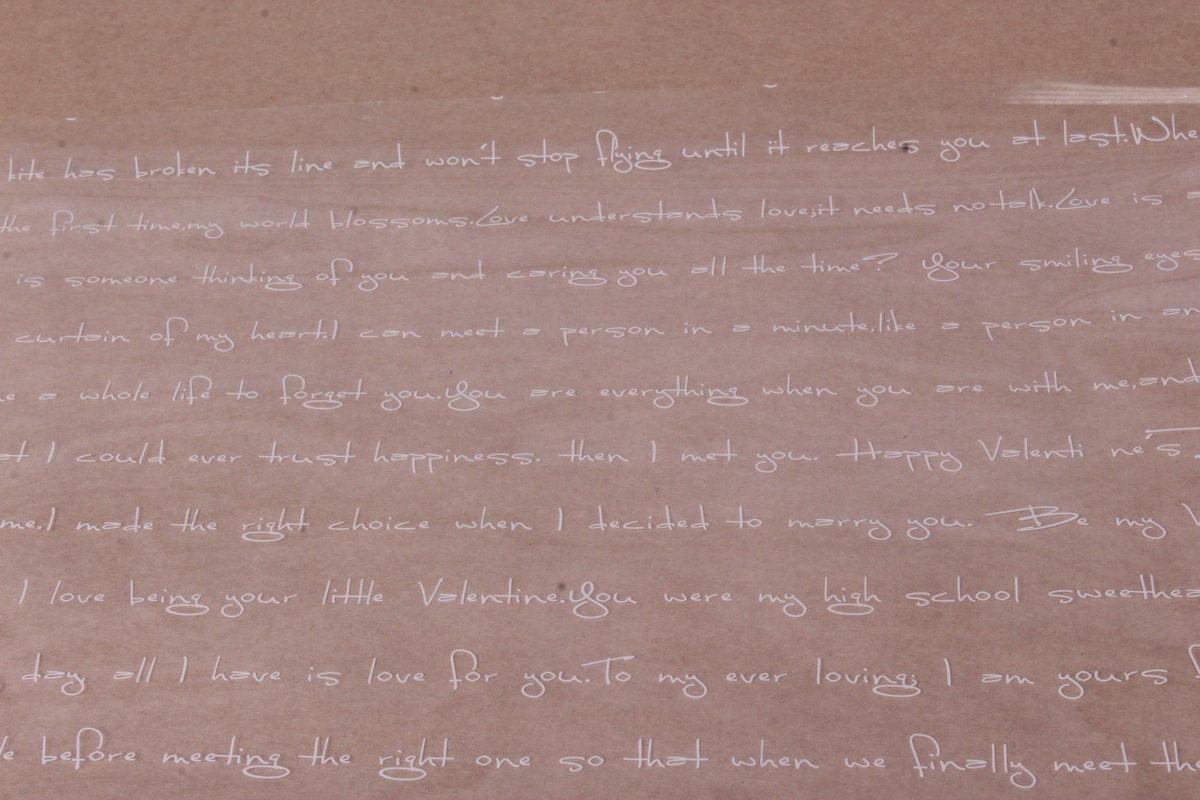 kite has broken its line and won't stop flying until it reaches you at last.Whe
the first time,my world blossoms.Love understands love;it needs no talk.Love is a
is someone thinking of you and caring you all the time? Your smiling eyes
curtain of my heart.I can meet a person in a minute,like a person in an
a whole life to forget you.You are everything when you are with me,and
I could ever trust happiness. then I met you. Happy Valenti ne's
me.I made the right choice when I decided to marry you. Be my
I love being your little Valentine.You were my high school sweethea
day all I have is love for you.To my ever loving; I am yours
before meeting the right one so that when we finally meet the